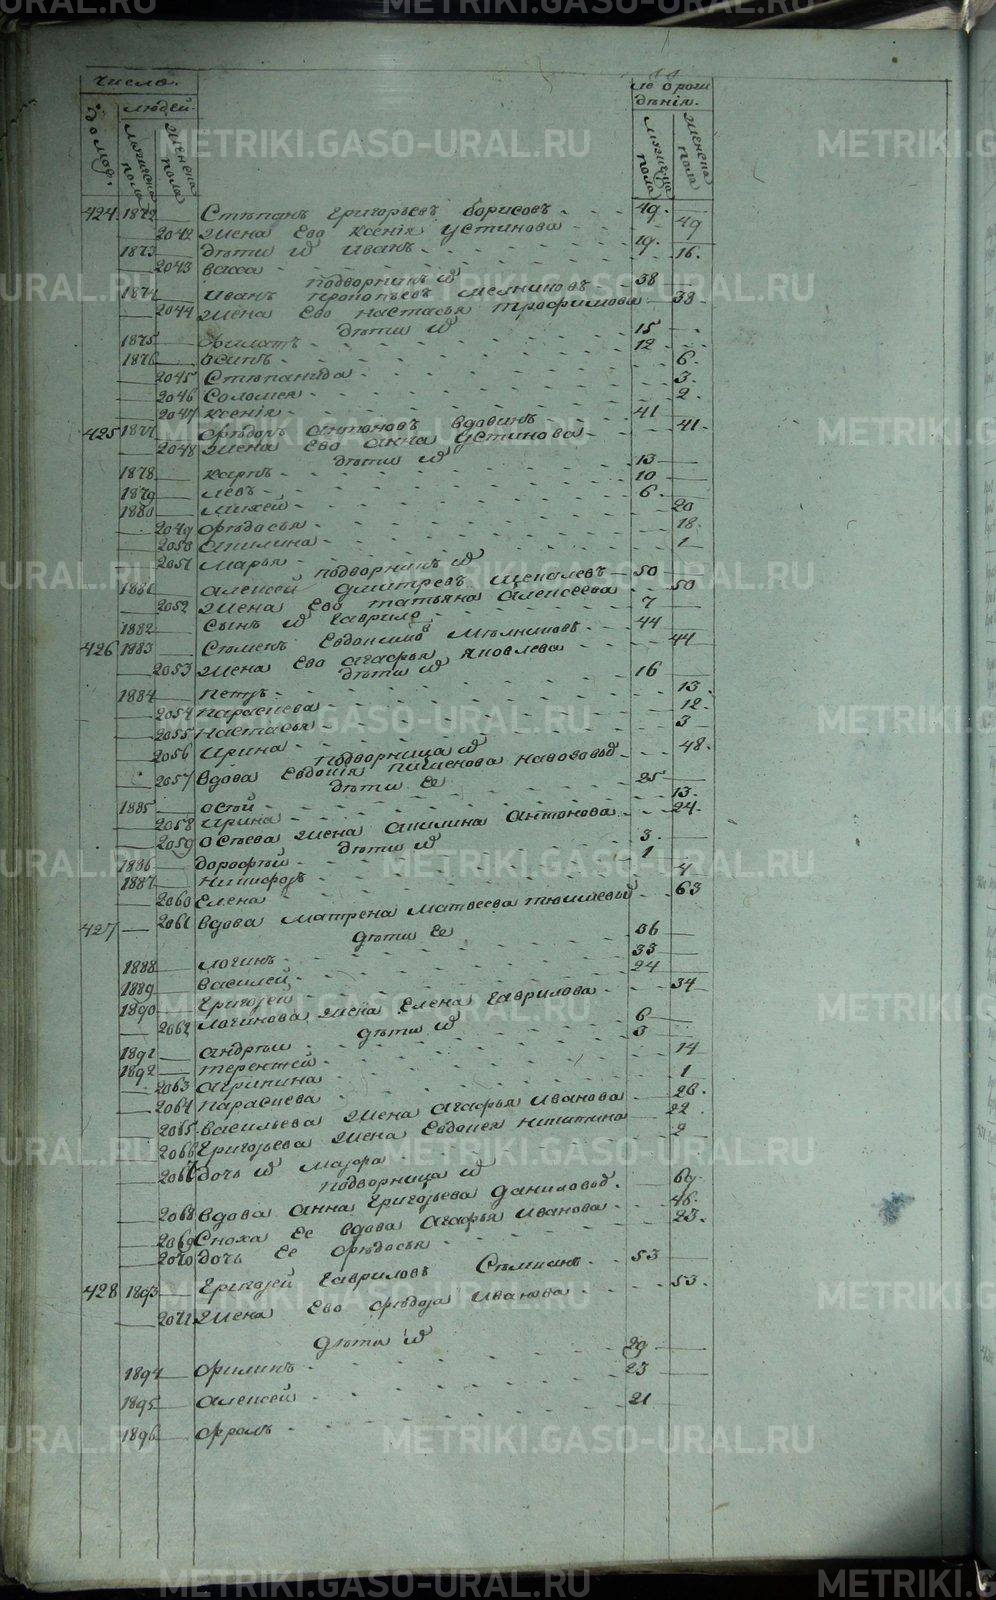 число.
домов.
людей.
мужеска пола
женска пола
дѣнія.
мужеска пола
женска пола
424 1872 Стѣпанъ Григорьевъ борисовъ 49
2042 жена Ево ксенія Устинова 49
1873 дѣти и иванъ 19
2043 васса 16
подворникъ
1874 иванъ прокопьевъ 38
2044 жена Ево настасья трофимова 38
дѣти
1875 филатъ 15
1876 осипъ 12
2045 Стѣпанида 6
2046 Соломея 3
2047 ксенія 2
425 1877 федоръ антоновъ вдовинъ 41
2048 жена Ево анна Устинова 41
дѣти
1878 карпъ 13
1879 левъ 10
1880 михей 6
2049 федосья 20
2050 акилина 18
2051 марья 1
подворникъ
1881 алексей дмитревъ щепалевъ 50
2052 жена Ево татьяна алексеева 50
1882 сынъ Гаврило 7
426 1883 Сѣменъ Евдокимовъ мѣлниковъ 44
2053 жена Ево агафья яковлева 44
дѣти
1884 петръ 16
2054 парасиева 13
2055 настасья 12
2056 ирина 3
подворница
2057 вдова Евдокія пименова 48
дѣти Ее
1885 остей 25
2058 ирина 13
2059 остьева жена акилина антонова 24
дѣти
1886 дорофѣй 3
1887 никифоръ 1
2060 Елена 4
427 2061 вдова матрена матвеева 63
дѣти Ее
1888 логинъ 36
1889 василей 33
1890 Григорей 24
2062 логинова жена Елена Гаврилова 34
дѣти
1891 андрѣи 6
1892 терентей 3
2063 агрипина 14
2064 парасиева 1
2065 васильева жена агафья иванова 26
2066 Григорьева жена Евдокея никитина 22
2067 дочь маѳра 2
подворница
2068 вдова анна Григорьева 69
2069 Сноха Ее вдова агафья иванова 46
2070 дочь Ее федосья 23
428 1893 Григорей Гавриловъ 53
2071 жена Ево федора иванова 53
дѣти
1894 филипъ 29
1895 алексей 23
1896 фролъ 21
METRIKI.GASO-URAL.RU